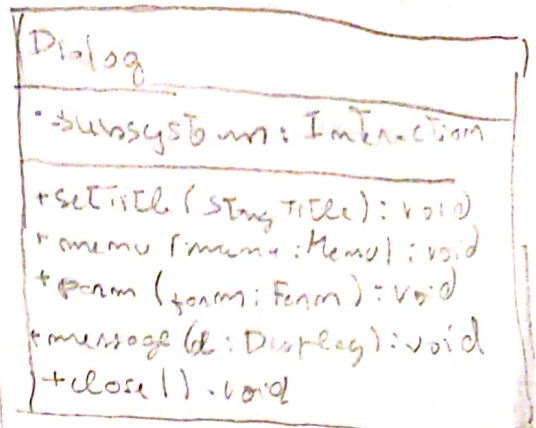 Dialog
-subsystem: Interaction
+setTitle(String Title): void
+menu(menu: Menu): void
+form (form: Form): void
+message(d: Display): void
+close(): void